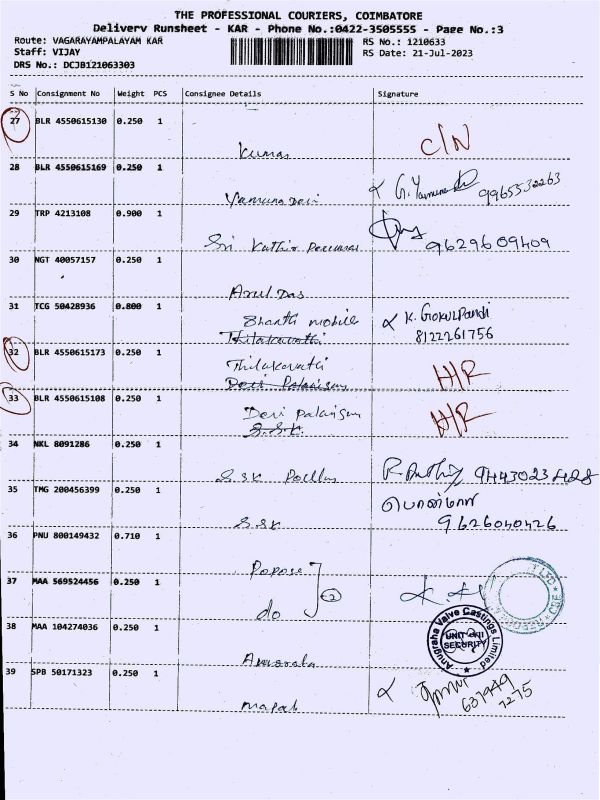 THE PROFESSIONAL COURIERS, COIMBATORE
Delivery Runsheet - KAR - Phone No.:0422-3505555 - Page No.:3
Route: VAGARAYAMPALAYAM KAR
RS No.: 1210633
Staff: VIJAY
RS Date: 21-Jul-2023
DRS No.: DCJB121063303
S No Consignment No Weight PCS Consignee Details Signature
27 BLR 4550615130 0.250 1
C/N
Kumar
28 BLR 4550615169 0.250 1
Yamuna Devi
9965532263
29 TRP 4213108 0.900 1
Sri Kathir
9629609409
30 NGT 40057157 0.250 1
Arul Das
31 TCG 50428936 0.800 1
Bharath mobile K. Gokul Pandi
Thilakavathi 8122261756
32 BLR 4550615173 0.250 1
Thilakavathi H/R
33 BLR 4550615108 0.250 1
H/R
S.S.K.
34 NKL 8091286 0.250 1
S.SK 9443023428
35 TMG 200456399 0.250 1
S.SK 9626040426
36 PNU 800149432 0.710 1
Propose
37 MAA 569524456 0.250 1
do 2
38 MAA 104274036 0.250 1
Anugraha Valve Castings Limited
UNIT
SECURITY
39 SPB 50171323 0.250 1
637949
7275